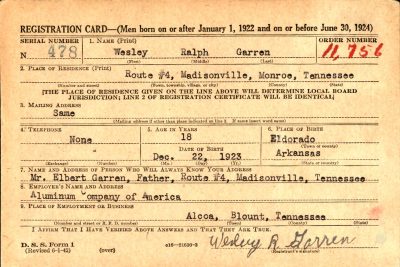 REGISTRATION CARD—(Men born on or after January 1, 1922 and on or before June 30, 1924)
SERIAL NUMBER 1. NAME (Print) ORDER NUMBER
N 478 Wesley Ralph Garren 11,756
(First) (Middle) (Last)
2. PLACE OF RESIDENCE (Print)
Route #4, Madisonville, Monroe, Tennessee
(Number and street) (Town, township, village, or city) (County) (State)
[THE PLACE OF RESIDENCE GIVEN ON THE LINE ABOVE WILL DETERMINE LOCAL BOARD
JURISDICTION; LINE 2 OF REGISTRATION CERTIFICATE WILL BE IDENTICAL]
3. MAILING ADDRESS
Same
[Mailing address if other than place indicated on line 2. If same insert word same]
4. TELEPHONE 5. AGE IN YEARS 6. PLACE OF BIRTH
None 18 Eldorado
DATE OF BIRTH (Town or county)
Dec. 22, 1923 Arkansas
(Exchange) (Number) (Mo.) (Day) (Yr.) (State or country)
7. NAME AND ADDRESS OF PERSON WHO WILL ALWAYS KNOW YOUR ADDRESS
Mr. Elbert Garren, Father, Route #4, Madisonville, Tennessee
8. EMPLOYER'S NAME AND ADDRESS
Aluminum Company of America
9. PLACE OF EMPLOYMENT OR BUSINESS
Alcoa, Blount, Tennessee
(Number and street or R. F. D. number) (Town) (County) (State)
I AFFIRM THAT I HAVE VERIFIED ABOVE ANSWERS AND THAT THEY ARE TRUE.
D. S. S. Form 1 Wesley R Garren
(Revised 6-1-42) (over) 16—21630-2